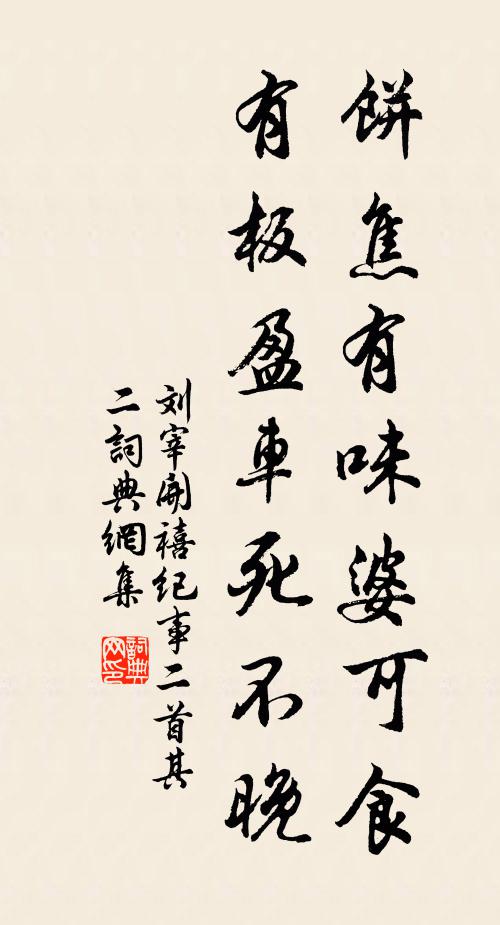 餅焦有味婆可食
有板盈車死不晚
刘宰開禧紀事二首其
二詞典網集
詞典
网印